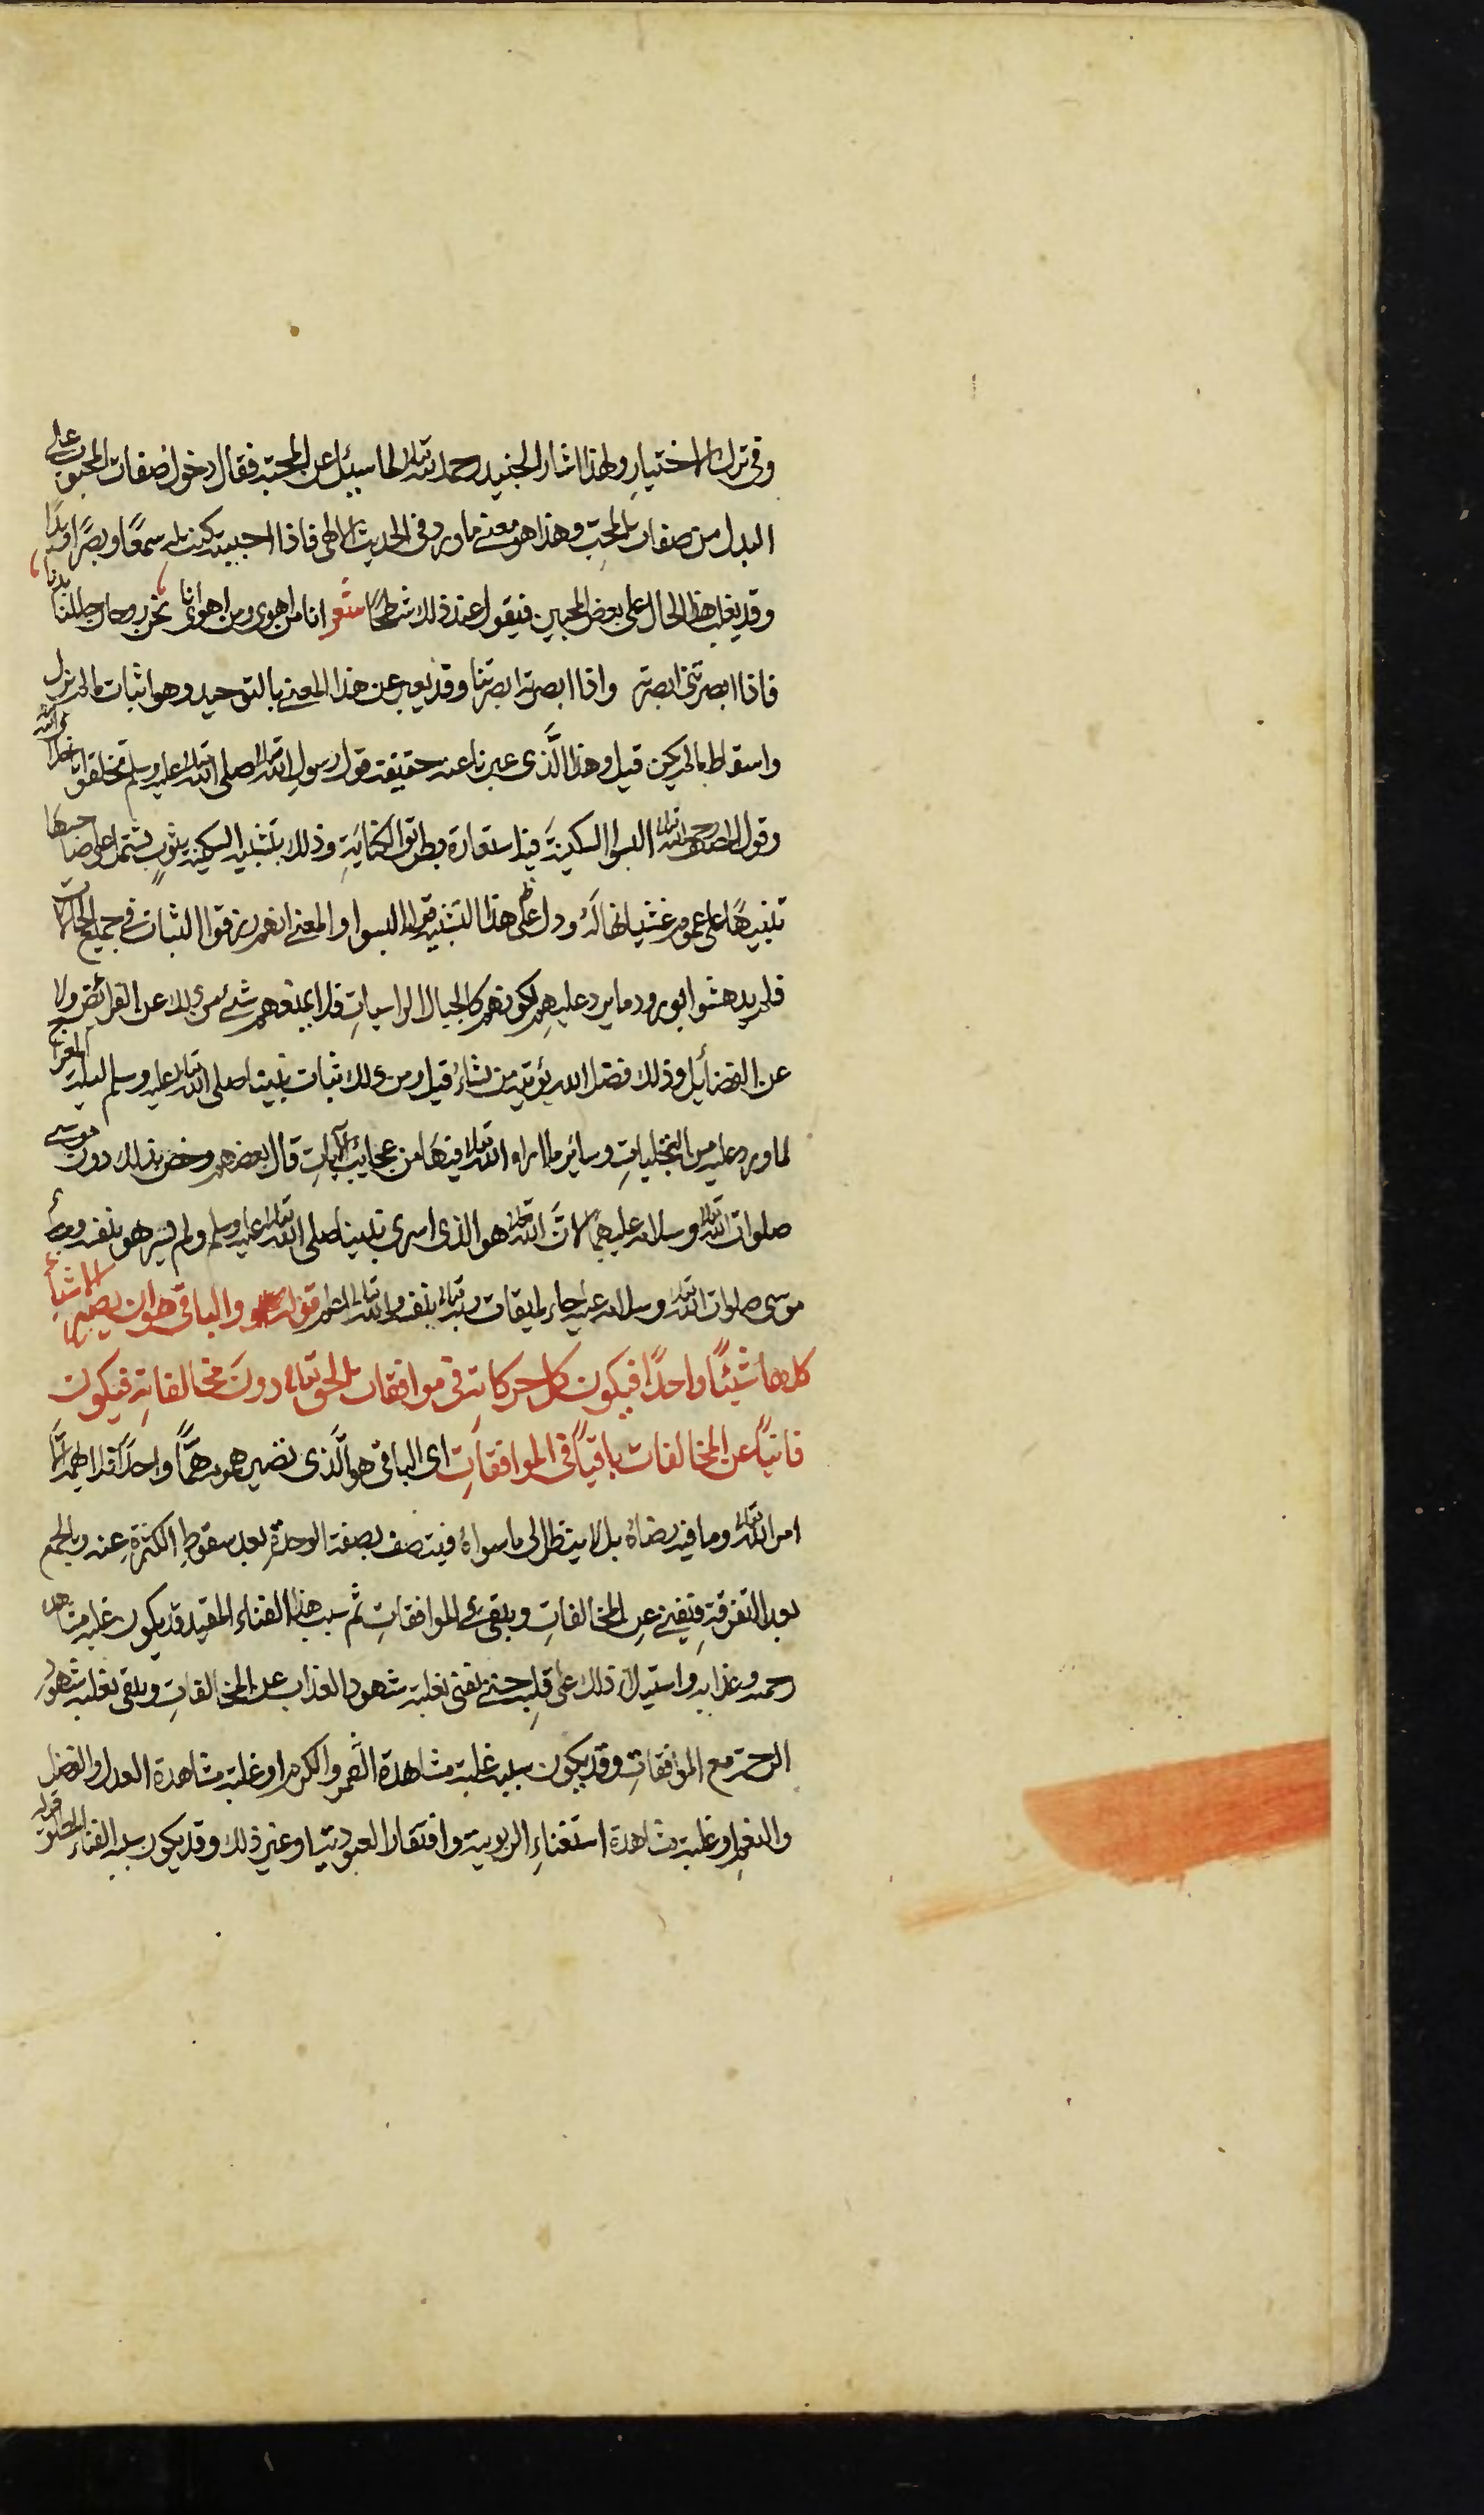 وفى ترك الاختيار ولهذا اشار الجنيد رحمه الله تعالى لما سئل عن المحبة فقال دخول صفات المحبوب على
البدل من صفات المحبّ وهذا هو معنى ما ورد فى الحديث الالهى فاذا احببته كنت له سمعًا وبصرًا ويدًا
وقد يغلب هذا الحال على بعض المحبين فيقول عند ذلك شطحًا شعر انا من اهوى ومن اهوى انا نحن روحان حللنا بدنا
فاذا ابصرتنى ابصرته واذا ابصرته ابصرتنا وقد يعبر عن هذا المعنى بالتوحيد وهو اثبات ما لم يزل
واسقاط ما لم يكن قيل وهذا الَّذى عبرنا عنه حقيقة قول رسول الله صلى الله تعالى عليه وسلم تخلقوا باخلاق الله
وقول المصنف رحمه الله تعالى البسوا السكينةَ فيه استعارة بطريق الكنايَةِ وذلك بتشبيه السكينة بثوبٍ يشتمل على صاحبها
تنبيهًا على عموم غشيانها لَهُ ودل على هذا التشبيه قوله البسوا والمعنى انهم رزقوا الثبات فى جميع الحالات
فلم يدهشوا بورود ما يرد عليهِم لكونهم كالجبال الراسياتِ فلا يمنعهم شئ من ذلك عن الفرائض ولا
عن الفضائل وذلك فضل الله يؤتيه من يشاءُ قيل ومن ذلك ثبات نبينا صلى الله تعالى عليه وسلم ليلة المعراج
لما ورد عليه من التجلياتِ وسائر ما اراه الله تعالى فيهَا من عجائب الآياتِ قال بعضهم وخص بذلك دون موسى
صلوات الله تعالى وسلامه عليهما لانَّ الله تعالى هو الذى اسرى بنبينا صلى الله تعالى عليه وسلم ولم يسر هو بنفسه
موسى صلوات الله تعالى وسلامه عليه جاء لميقات ربه تعالى بنفسه والله تعالى اعلم قوله والباقى هو ان يصير الاشيأ
كلها شيئًا واحدًا فيكون كل حركاته فى موافقات الحق تعالى دونَ مخالفاتِه فيكون
فانيًا عن المخالفات باقيًا فى الموافقاتِ اى الباقى هو الَّذى تصير همومه همًّا واحدًا فلا يهمه الَّا
امر الله تعالى وما فيه رضاهُ بل لا ينظر الى ما سواهُ فيتصف بصفة الوحدةِ بعد سقوطِ الكثرةِ عنه وبالجمع
بعد التفرقةِ فيفنى عنِ المخالفاتِ ويبقى فى الموافقاتِ ثم سبب هذا الفناء المقيد قد يكون غلبة مشاهدة
رحمته وعذابه واستيلاءُ ذلك على قلبِه حتى تفنى بغلبة شهود العذاب عن المخالفاتِ ويبقى بغلبة شهود
الرحمة مع الموافقاتِ وقد يكون سببه غلبة مشاهدة القهر والكرم او غلبة مشاهدة العدل والفضل
والنعمِ او غلبة مشاهدة استغناءِ الربوبية وافتقار العبودية او غير ذلك وقد يكون سبب الفناء المطلق